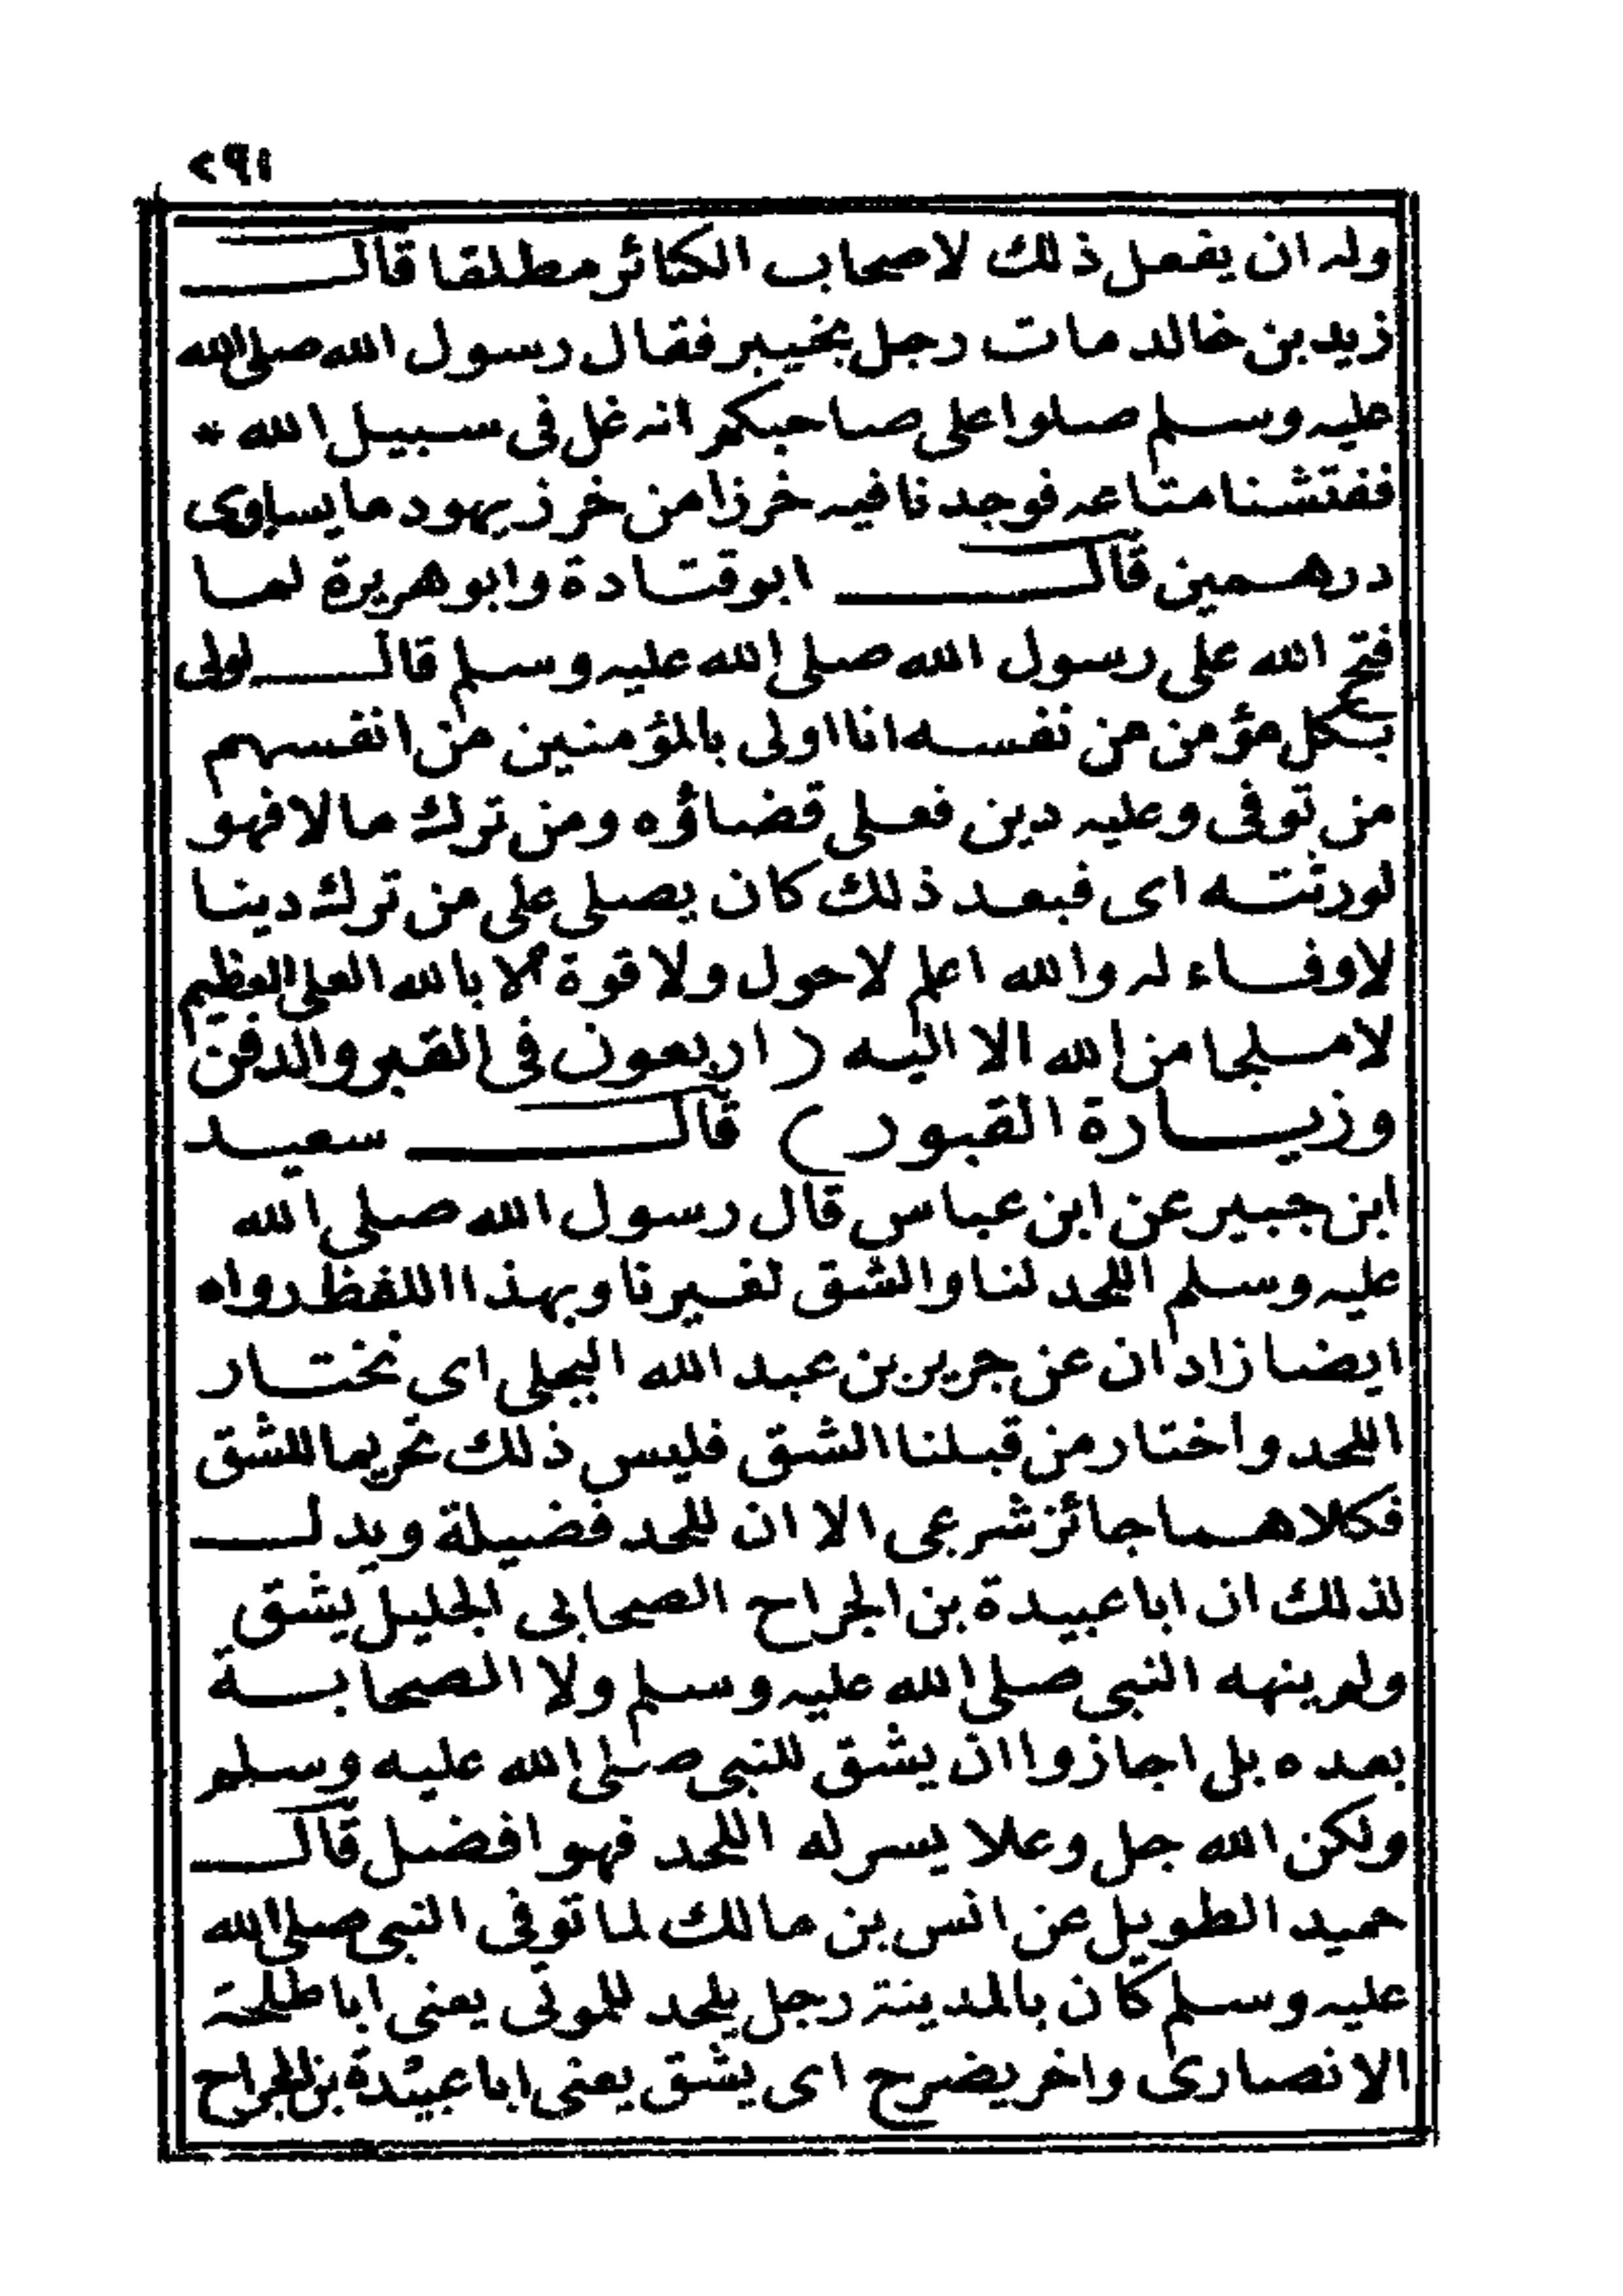 ٢٩١
وله ان يفعل ذلك لاصحاب الكبائر مطلقا قال
زيد بن خالد مات رجل بخيبر فقال رسول الله صلى الله
عليه وسلم صلوا على صاحبكم انه غل فى سبيل الله *
ففتشنا متاعه فوجدنا فيه خرزا من خرز يهود ما يساوى
درهمين قال ابو قتادة وابو هريرة لما
فتح الله على رسول الله صلى الله عليه وسلم قال اولى
بكل مؤمن من نفسه انا اولى بالمؤمنين من انفسهم
من توفى وعليه دين فعلى قضاؤه ومن ترك مالا فهو
لورثته اى فبعد ذلك كان يصلى على من ترك دينا
لا وفاء له والله اعلم لا حول ولا قوة الا بالله العلى العظيم
لا ملجا من الله الا اليه ( اربعون فى القبر والدفن
وزيارة القبور ) قال سعيد
ابن جبير عن ابن عباس قال رسول الله صلى الله
عليه وسلم اللحد لنا والشق لغيرنا وبهذا اللفظ رواه
ايضا زادان عن جرير بن عبد الله البجلى اى نختار
اللحد واختار من قبلنا الشق فليس ذلك تحريما للشق
فكلاهما جائز شرعى الا ان للحد فضيلة ويدل
لذلك ان ابا عبيدة بن الجراح الصحابى الجليل يشق
ولم ينهه النبى صلى الله عليه وسلم ولا الصحابة
بعده بل اجازوا ان يشق للنبى صلى الله عليه وسلم
ولكن الله جل وعلا يسر له اللحد فهو افضل قال
حميد الطويل عن انس بن مالك لما توفى النبى صلى الله
عليه وسلم كان بالمدينة رجل يلحد للموتى يعنى ابا طلحة
الانصارى واخر يضرح اى يشق يعنى ابا عبيدة بن الجراح